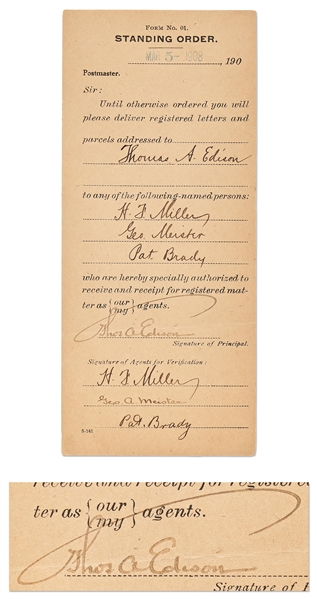 FORM No. 61.
STANDING ORDER.
MAR 5- 1908 , 190
Postmaster.
Sir:
Until otherwise ordered you will
please deliver registered letters and
parcels addressed to
Thomas A. Edison
to any of the following-named persons:
H. F. Miller
Geo. Meister
Pat Brady
who are hereby specially authorized to
receive and receipt for registered mat-
ter as {our
my} agents.
Thos A Edison
Signature of Principal.
Signature of Agents for Verification:
H. F Miller
Geo. A Meister
Pat. Brady
5-141
receive and receipt for registered
ter as {our
my} agents.
Thos A Edison
Signature of P